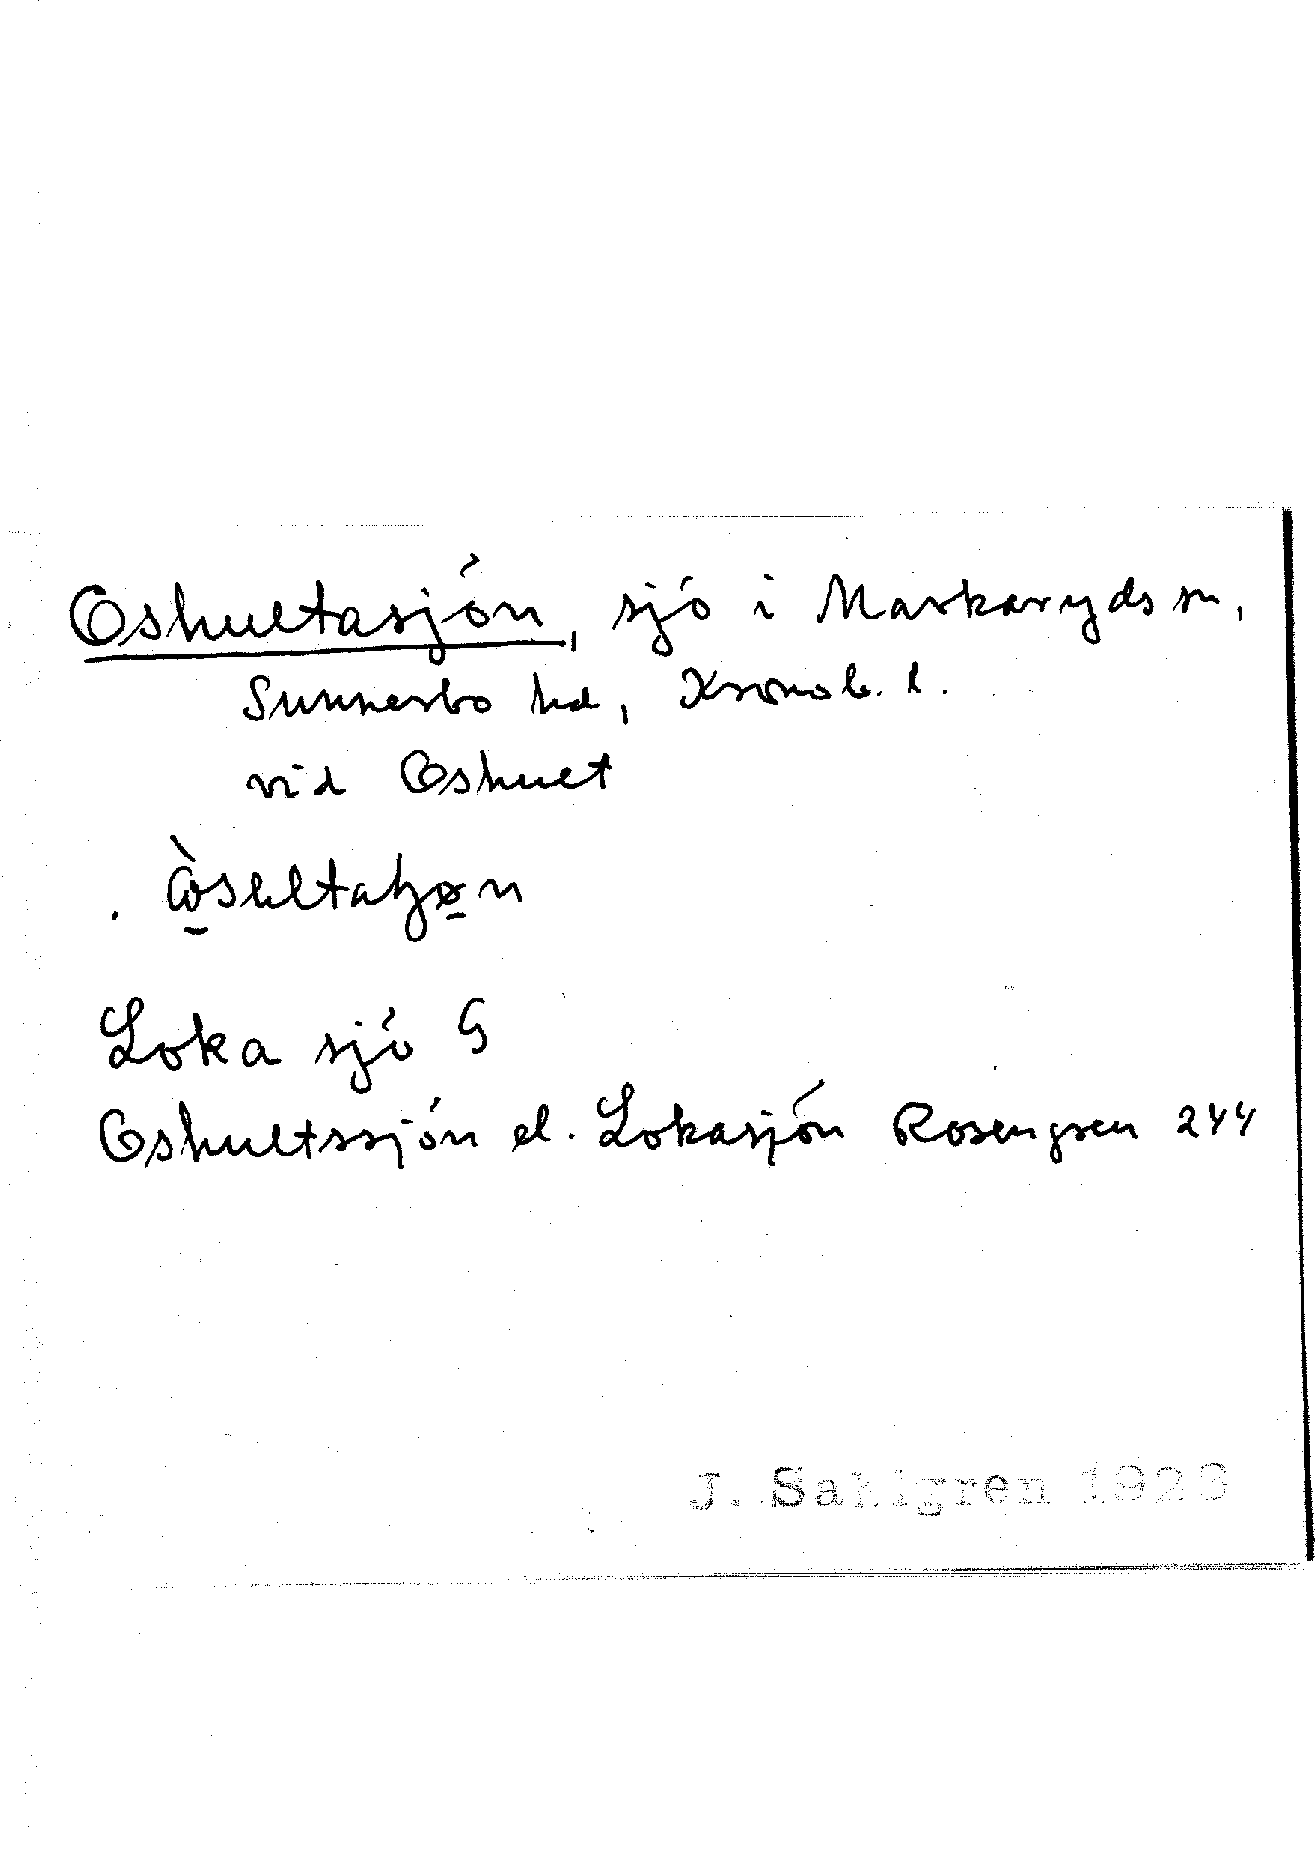 Oshultasjön, sjö i Markaryds sn,
Sunnerbo hd, Kronob. l.
vid Oshult
Loka sjö G
Oshultssjön el. Lokasjön Rosengren 244
J. Sahlgren 1926